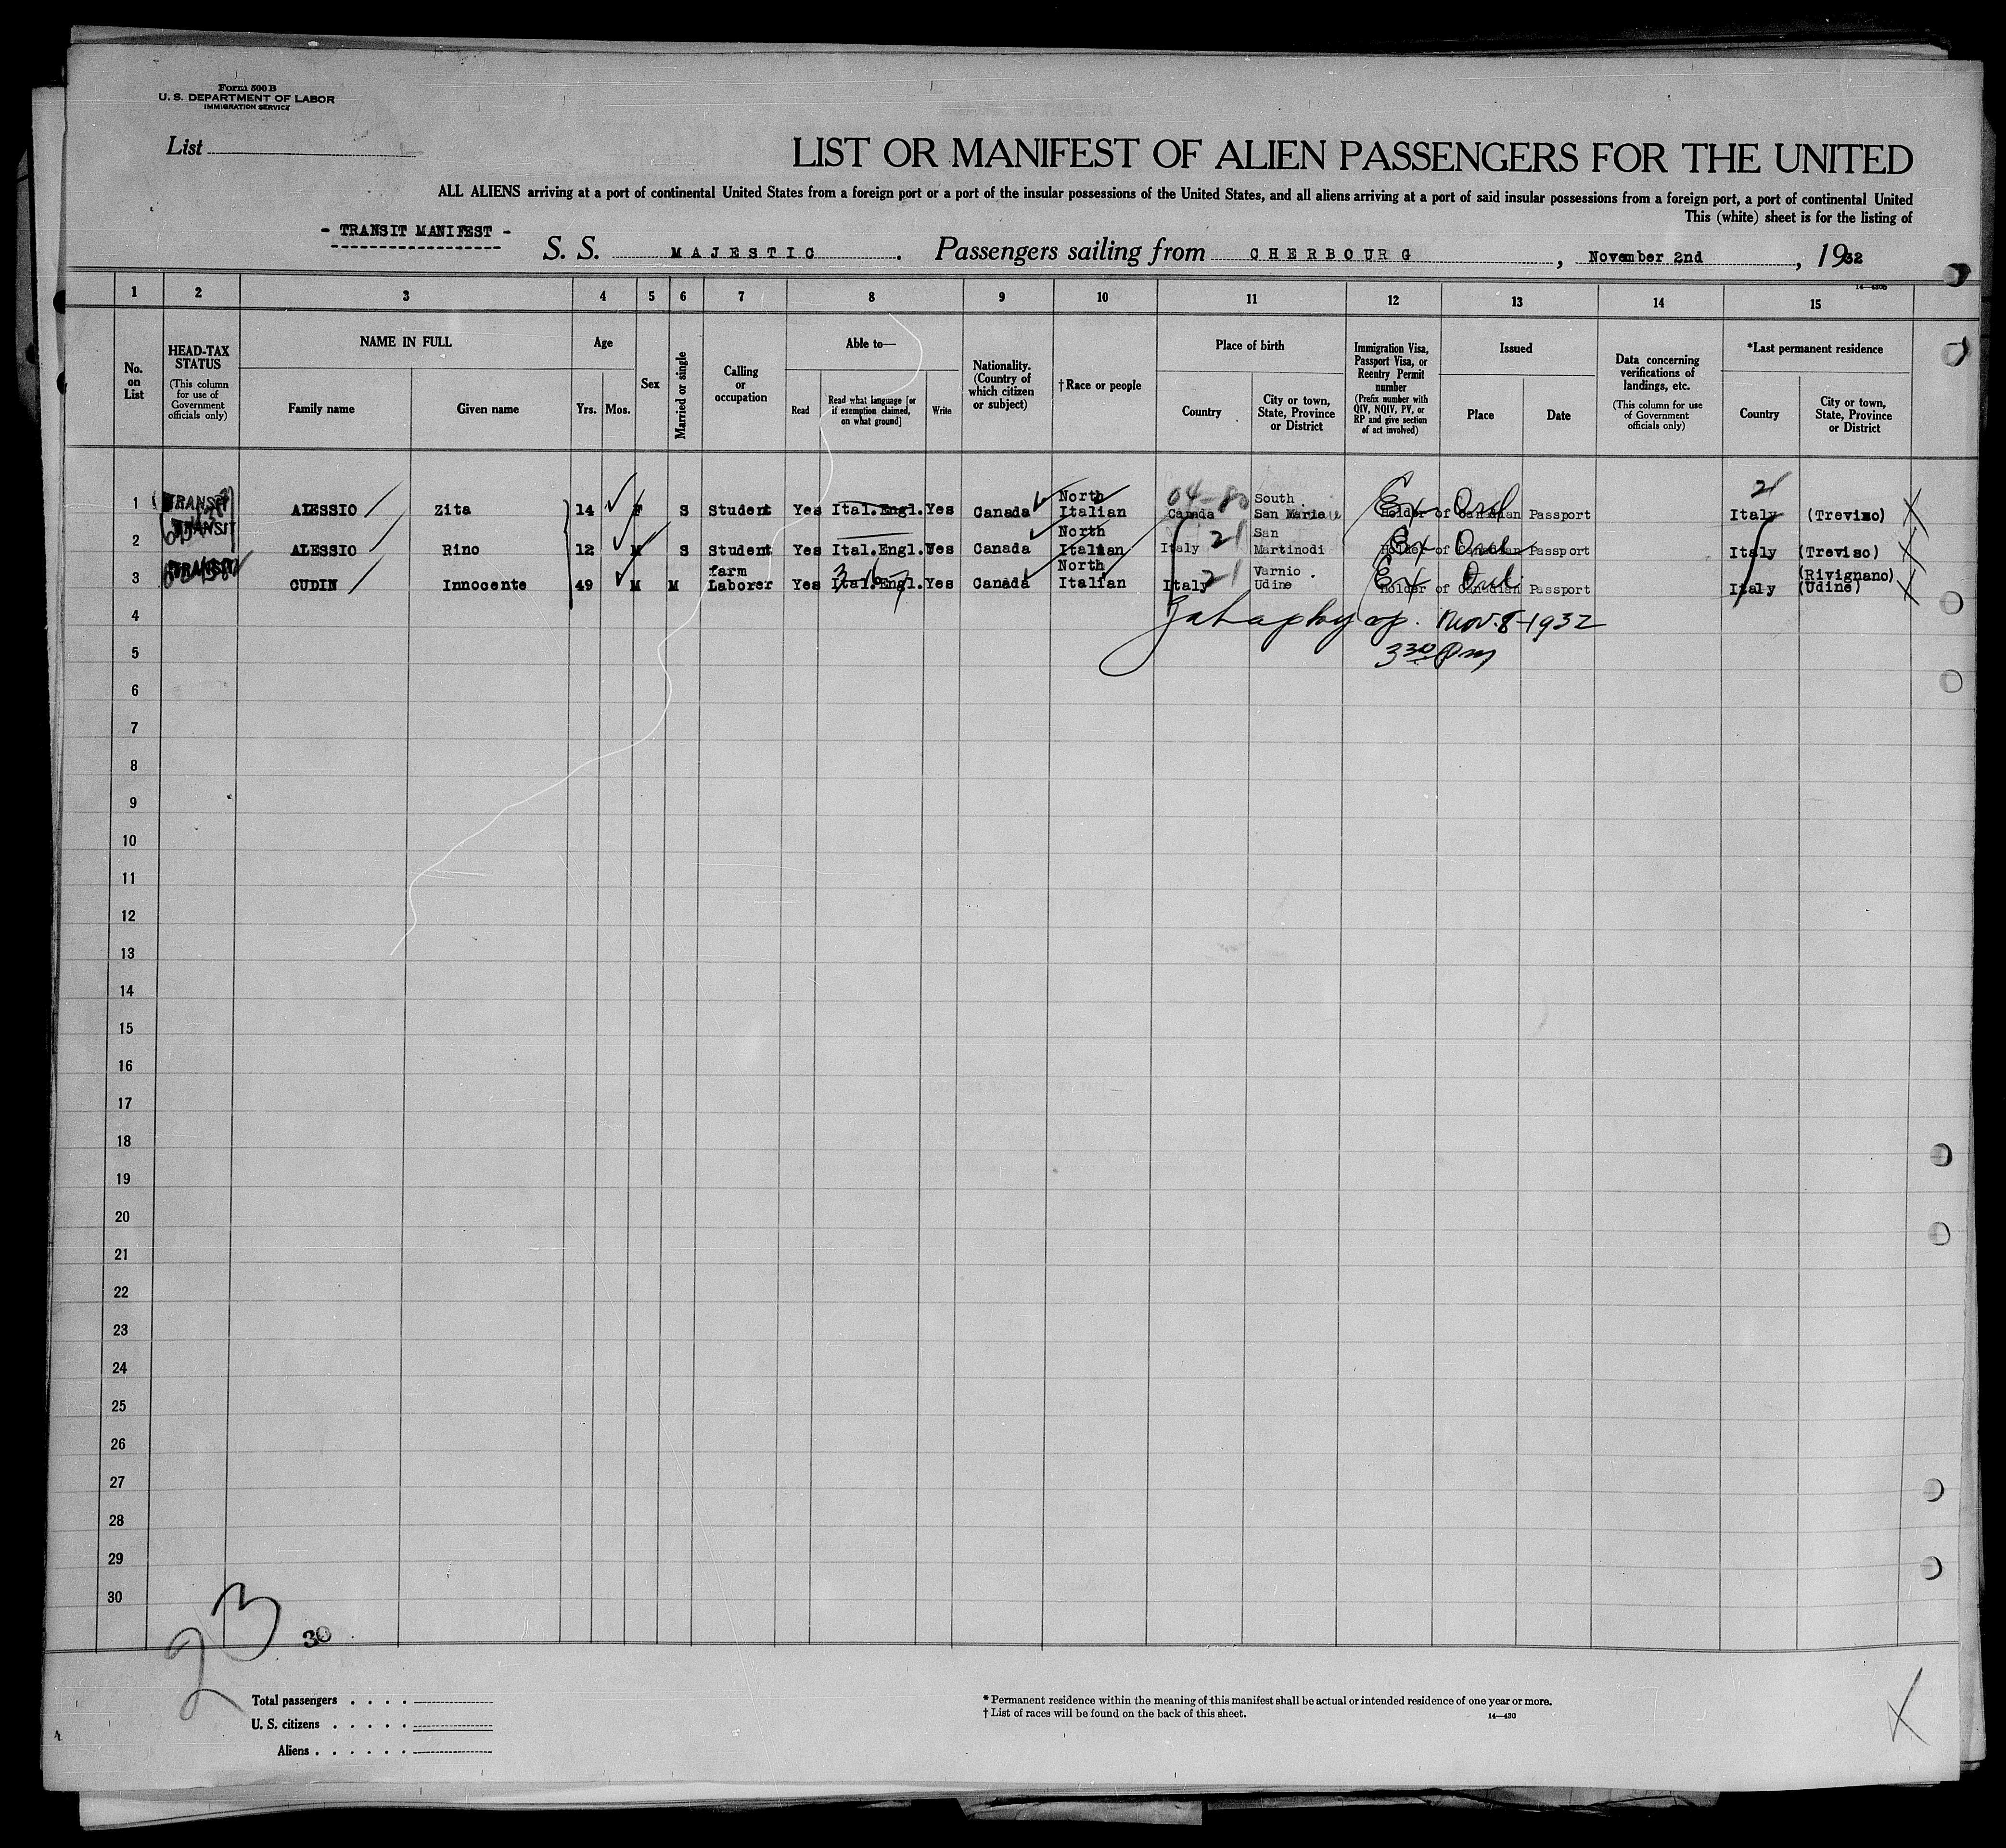 Form 500 B
U. S. DEPARTMENT OF LABOR
IMMIGRATION SERVICE
List
LIST OR MANIFEST OF ALIEN PASSENGERS FOR THE UNITED
ALL ALIENS arriving at a port of continental United States from a foreign port or a port of the insular possessions of the United States, and all aliens arriving at a port of said insular possessions from a foreign port, a port of continental United
This (white) sheet is for the listing of
- TRANSIT MANIFEST -
S. S. MAJESTIC . Passengers sailing from CHERBOURG , November 2nd , 1932
14—430b
1 2 3 4 5 6 7 8 9 10 11 12 13 14 15
No. on List
HEAD-TAX STATUS
(This column for use of Government officials only)
NAME IN FULL
Family name
Given name
Age
Yrs. Mos.
Sex
Married or single
Calling or occupation
Able to—
Read
Read what language [or if exemption claimed, on what ground]
Write
Nationality. (Country of which citizen or subject)
†Race or people
Place of birth
Country
City or town, State, Province or District
Immigration Visa, Passport Visa, or Reentry Permit number
(Prefix number with QIV, NQIV, PV, or RP and give section of act involved)
Issued
Place
Date
Data concerning verifications of landings, etc.
(This column for use of Government officials only)
*Last permanent residence
Country
City or town, State, Province or District
1 TRANSIT ALESSIO Zita 14 F S Student Yes Ital.Engl. Yes Canada North Italian 04-80 Canada South San Marie Ex Holder of Canadian Passport 21 Italy (Treviso) X
2 TRANSIT ALESSIO Rino 12 M S Student Yes Ital.Engl. Yes Canada North Italian Italy 21 San Martinodi Ex Holder of Canadian Passport Italy (Treviso) X
3 TRANSIT CUDIN Innocente 49 M M farm Laborer Yes Ital.Engl. Yes Canada North Italian Italy 21 Varnio Udine Ex Holder of Canadian Passport Italy (Rivignano) (Udine) X
4 Nov. 8-1932
5 3 30 Pm
6
7
8
9
10
11
12
13
14
15
16
17
18
19
20
21
22
23
24
25
26
27
28
29
30
23
30
Total passengers . . . .
U. S. citizens . . . . .
Aliens . . . . . .
* Permanent residence within the meaning of this manifest shall be actual or intended residence of one year or more.
† List of races will be found on the back of this sheet.
14—430
X